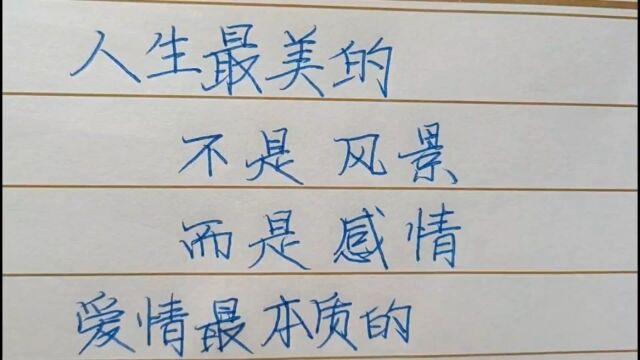 人生最美的
不是风景
而是感情
爱情最本质的